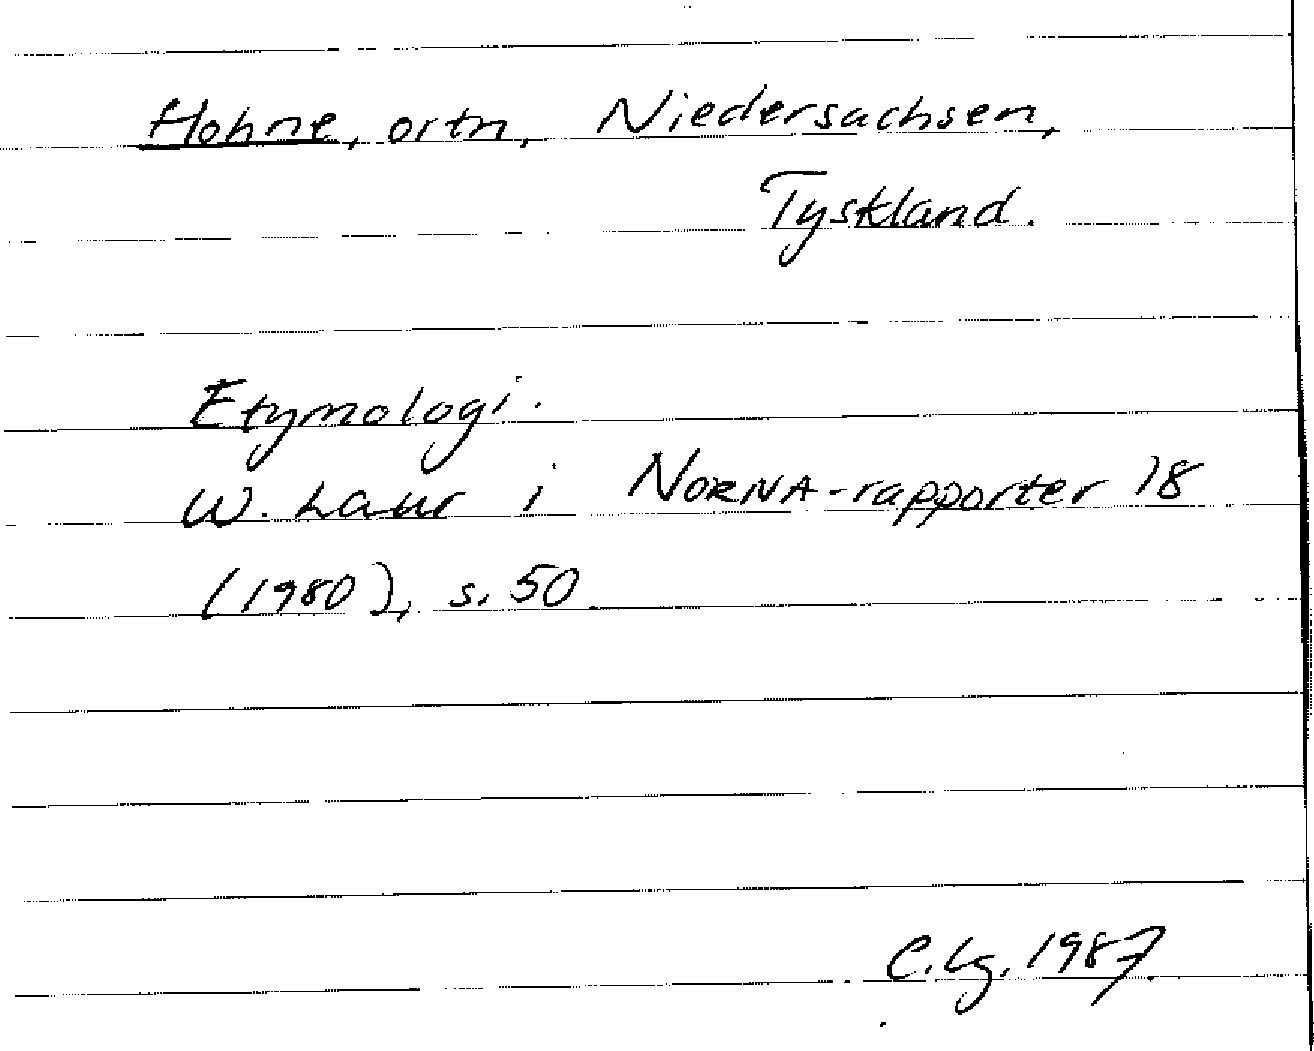 Hohne, ortn, Niedersachsen,
Tyskland.
Etymologi.
W. Laur i NORNA-rapporter 18
(1980), s. 50
C.Lg. 1987